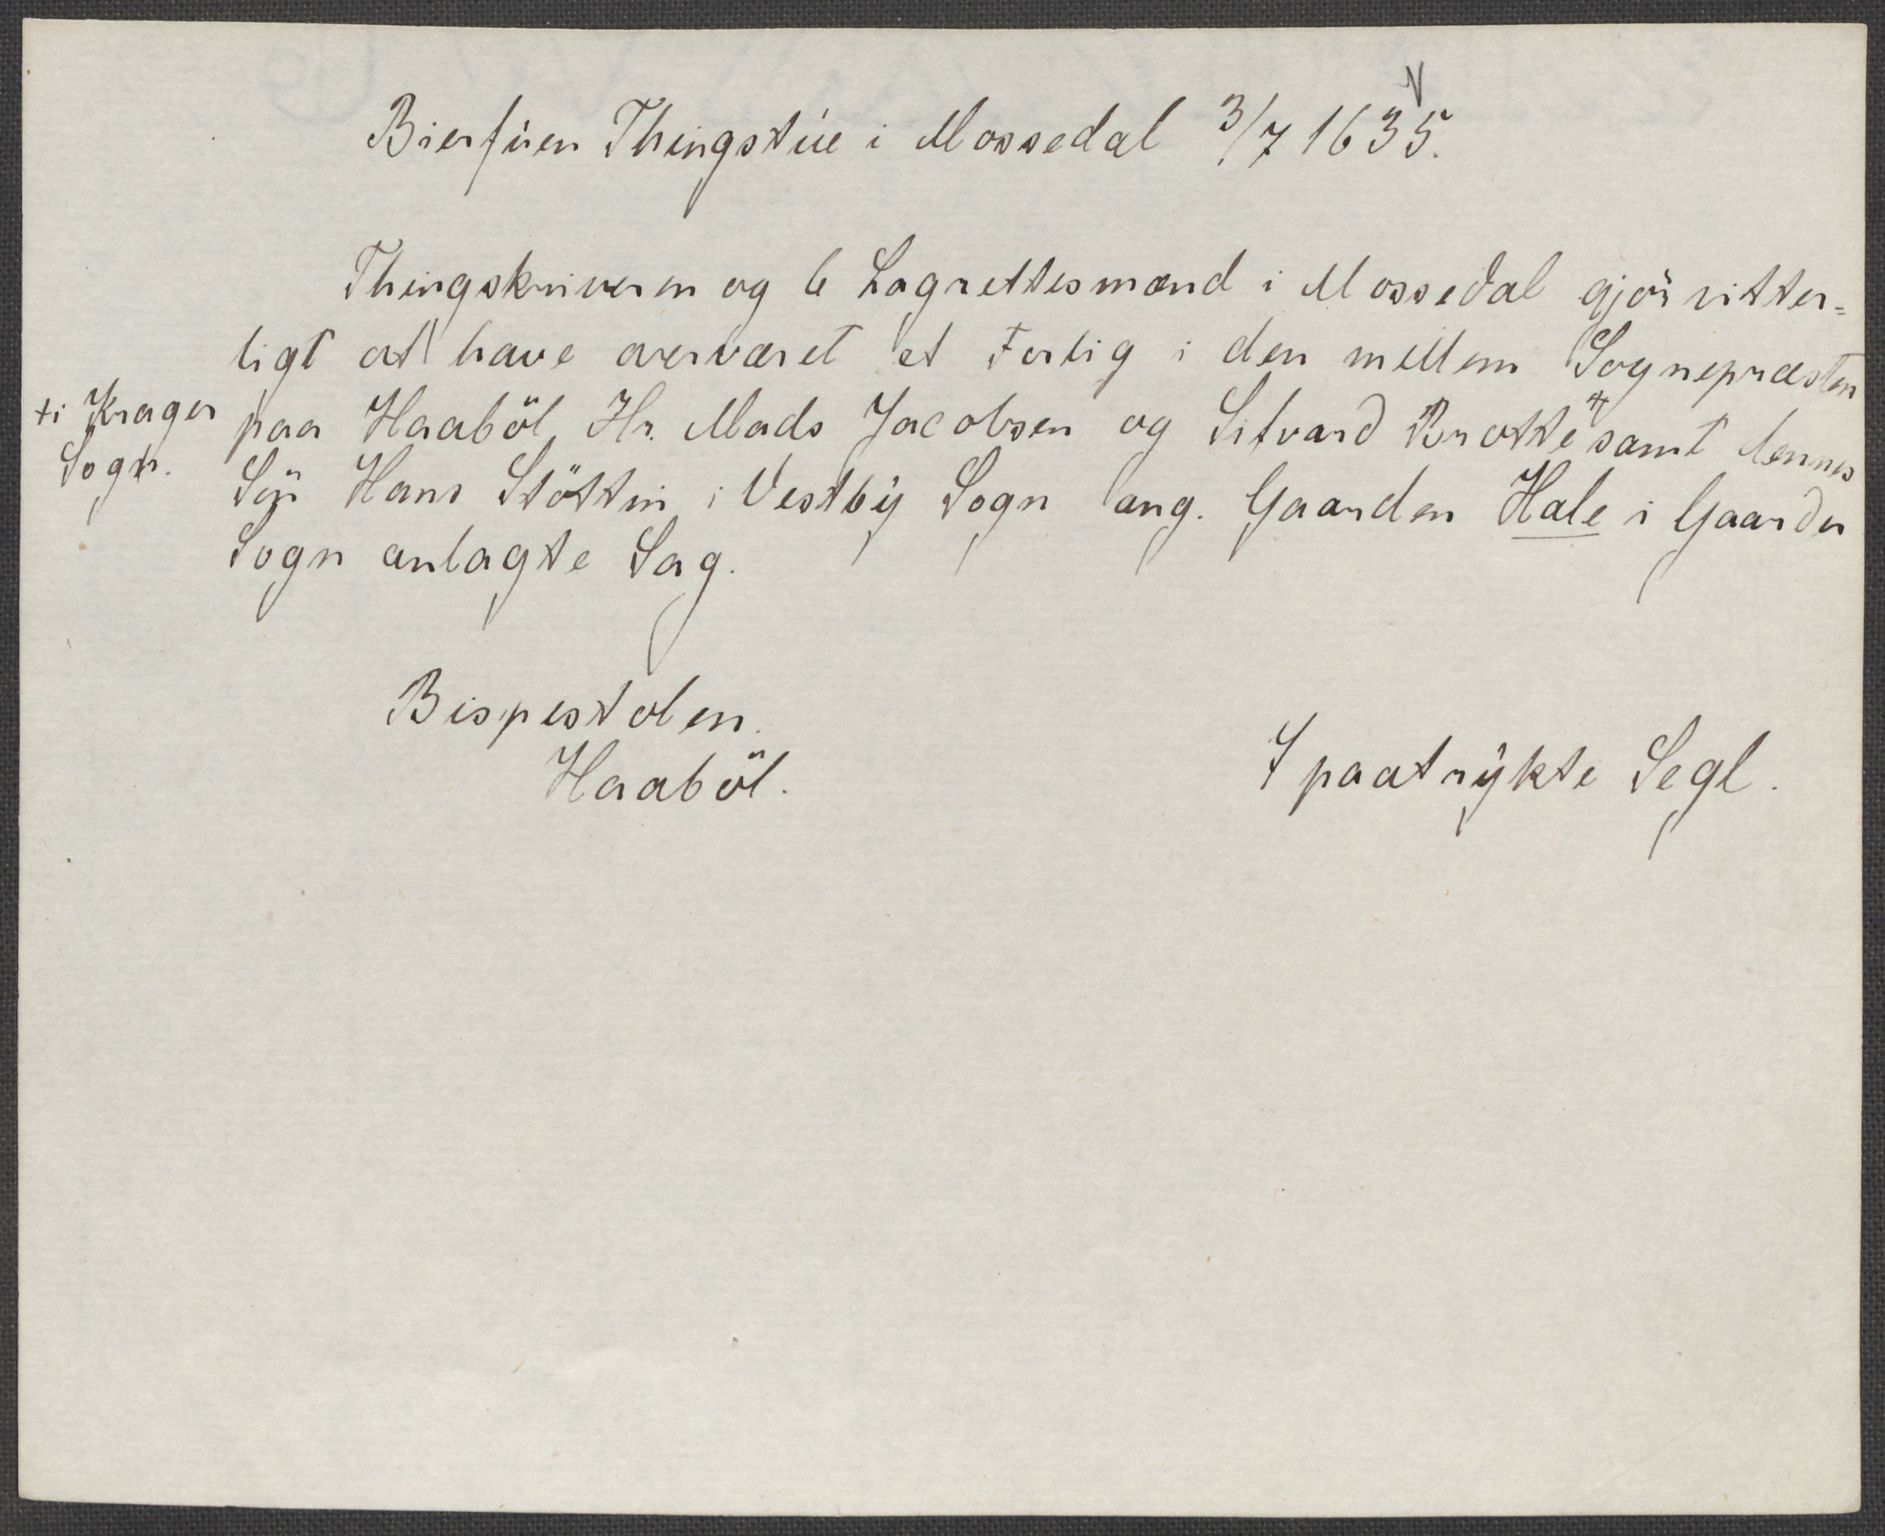 Bierfüen Thingstüe i Mossedal 3/7 1635.
Thingskriveren og 6 Lagrettesmænd i Mossedal gjör vitter=
ligt at have overværet et Forlig i den mellem Sognepræsten
paa Haaböl Hr. Mads Jacobsen og Sifvard Brotte + samt dennes
+ i Krager
Sogn.
Sön Hans Stöttin i Vestby Sogn ang. Gaarden Hale i Gaarder
Sogn anlagte Sag.
Bispestolen.
Haaböl.
7 paatrykte Segl.